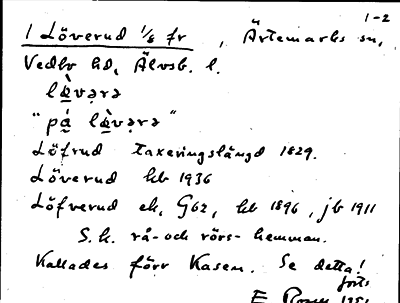 1-2
1 Löverud 1/8 fr , Ärtemarks sn,
Vedbo hd, Älvsb. l.
lø̀vərə
"pǻ lø̀vərə"
Löfrud taxeringslängd 1829.
Löverud hb 1936
Löfverud ek, G62, hb 1896, jb 1911
S.k. rå- och rörs- hemman.
Kallades förr Kasen. Se detta!
forts
E